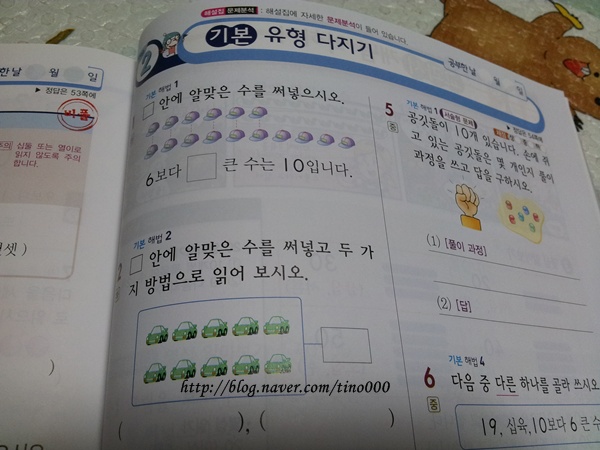 한날 월 일
▶ 정답은 53쪽에
비품
주의 십을 또는 열이로
읽지 않도록 주의
합니다.
해설집 문제분석 : 해설집에 자세한 문제분석이 들어 있습니다.
2 기본 유형 다지기
공부한날 월 일
기본 해법 1
□ 안에 알맞은 수를 써넣으시오.
6보다 □ 큰 수는 10입니다.
기본 해법 2
□ 안에 알맞은 수를 써넣고 두 가
지 방법으로 읽어 보시오.
( ), (
5 기본 해법 1 서술형 문제
중 공깃돌이 10개 있습니다. 손에 쥐
고 있는 공깃돌은 몇 개인지 풀이
과정을 쓰고 답을 구하시오.
(1) [풀이 과정]
(2) [답]
기본 해법 4
6 다음 중 다른 하나를 골라 쓰시오
중
19, 십육, 10보다 6 큰 수
http://blog.naver.com/tino000